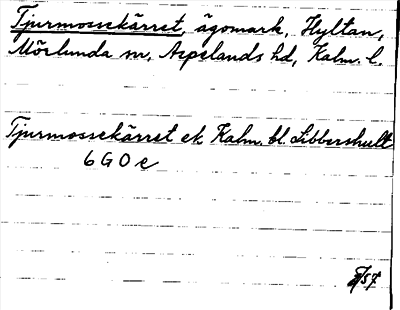 Tjurmossekärret, ägomark, Hyltan,
Mörlunda sn, Aspelands hd, Kalm. l.
Tjurmossekärret ek Kalm. bl. Libbershult
6 G 0 e
/57